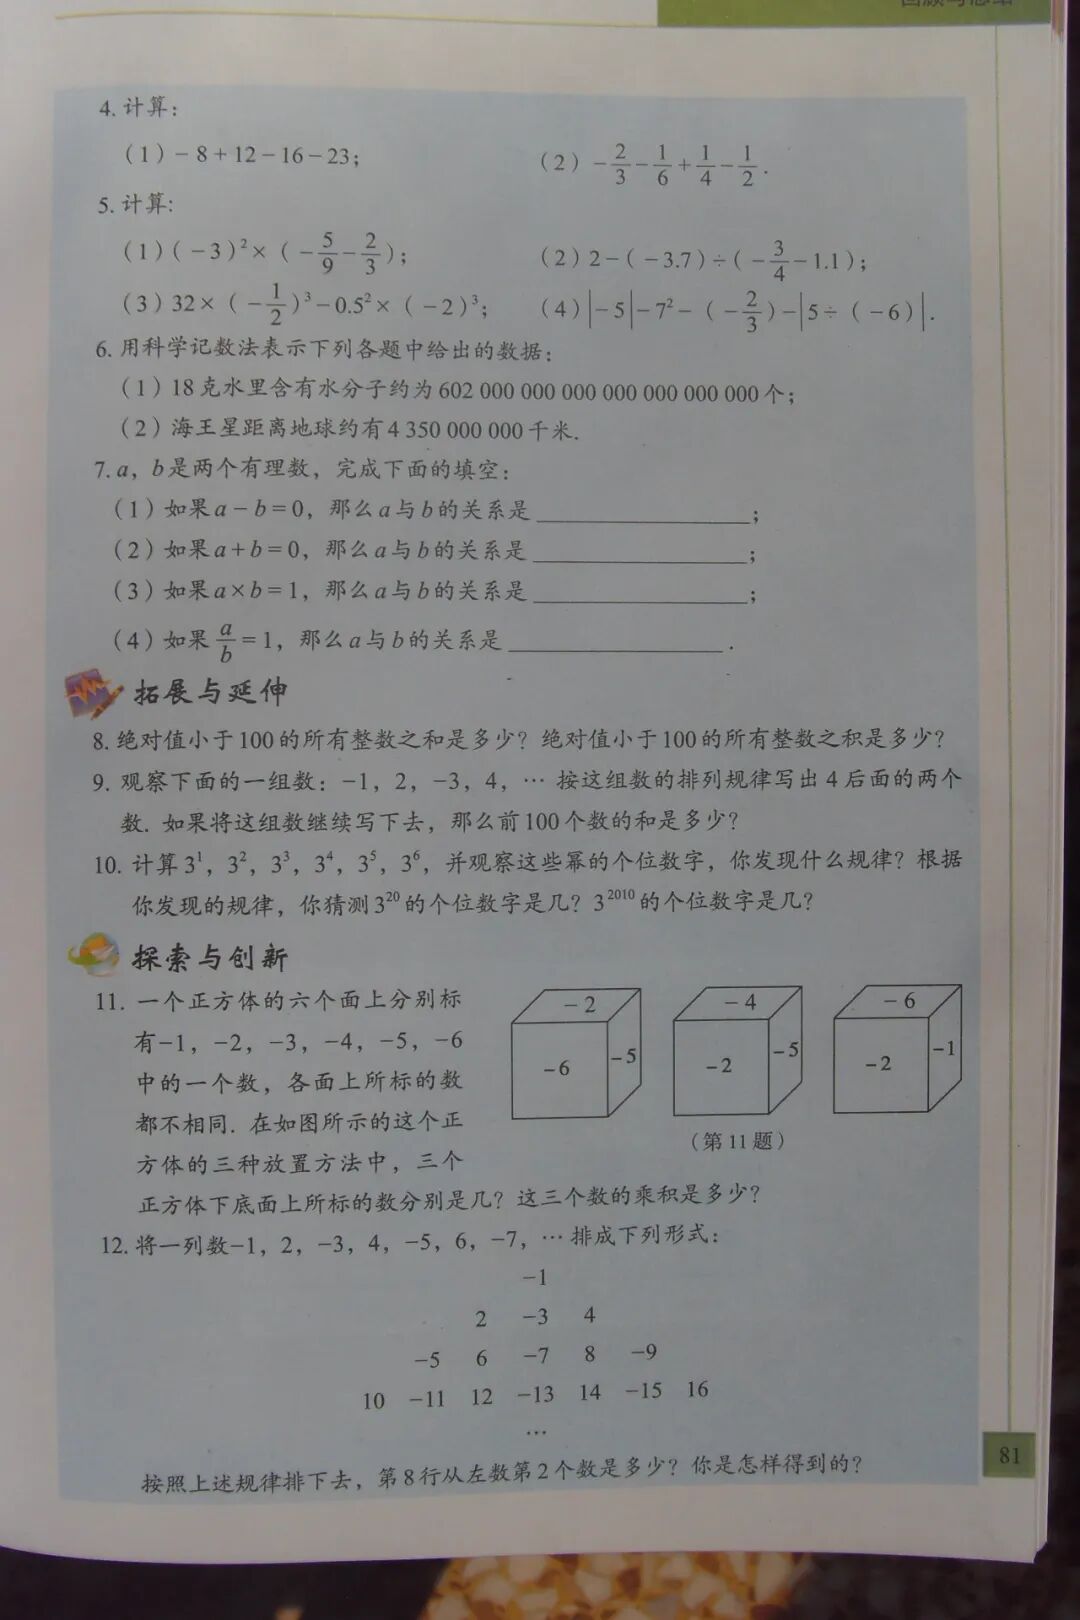 4. 计算：
（1）－8＋12－16－23； （2）－2/3－1/6＋1/4－1/2．
5. 计算:
（1）（－3）²×（－5/9－2/3）； （2）2－（－3.7）÷（－3/4－1.1）；
（3）32×（－1/2）³－0.5²×（－2）³； （4）|－5|－7²－（－2/3）－|5÷（－6）|．
6. 用科学记数法表示下列各题中给出的数据：
（1）18克水里含有水分子约为602 000 000 000 000 000 000 000个；
（2）海王星距离地球约有4 350 000 000千米.
7. a，b是两个有理数，完成下面的填空：
（1）如果a－b＝0，那么a与b的关系是________________；
（2）如果a＋b＝0，那么a与b的关系是________________；
（3）如果a×b＝1，那么a与b的关系是________________；
（4）如果a/b＝1，那么a与b的关系是________________．
拓展与延伸
8. 绝对值小于100的所有整数之和是多少？绝对值小于100的所有整数之积是多少？
9. 观察下面的一组数：－1，2，－3，4，… 按这组数的排列规律写出4后面的两个
数. 如果将这组数继续写下去，那么前100个数的和是多少？
10. 计算3¹，3²，3³，3⁴，3⁵，3⁶，并观察这些幂的个位数字，你发现什么规律？根据
你发现的规律，你猜测3²⁰的个位数字是几？3²⁰¹⁰的个位数字是几？
探索与创新
11. 一个正方体的六个面上分别标
有－1，－2，－3，－4，－5，－6
中的一个数，各面上所标的数
都不相同. 在如图所示的这个正
方体的三种放置方法中，三个
正方体下底面上所标的数分别是几？这三个数的乘积是多少？
－2 －4 －6
－6 －5 －2 －5 －2 －1
（第11题）
12. 将一列数－1，2，－3，4，－5，6，－7，… 排成下列形式：
－1
2 －3 4
－5 6 －7 8 －9
10 －11 12 －13 14 －15 16
…
按照上述规律排下去，第8行从左数第2个数是多少？你是怎样得到的？
81